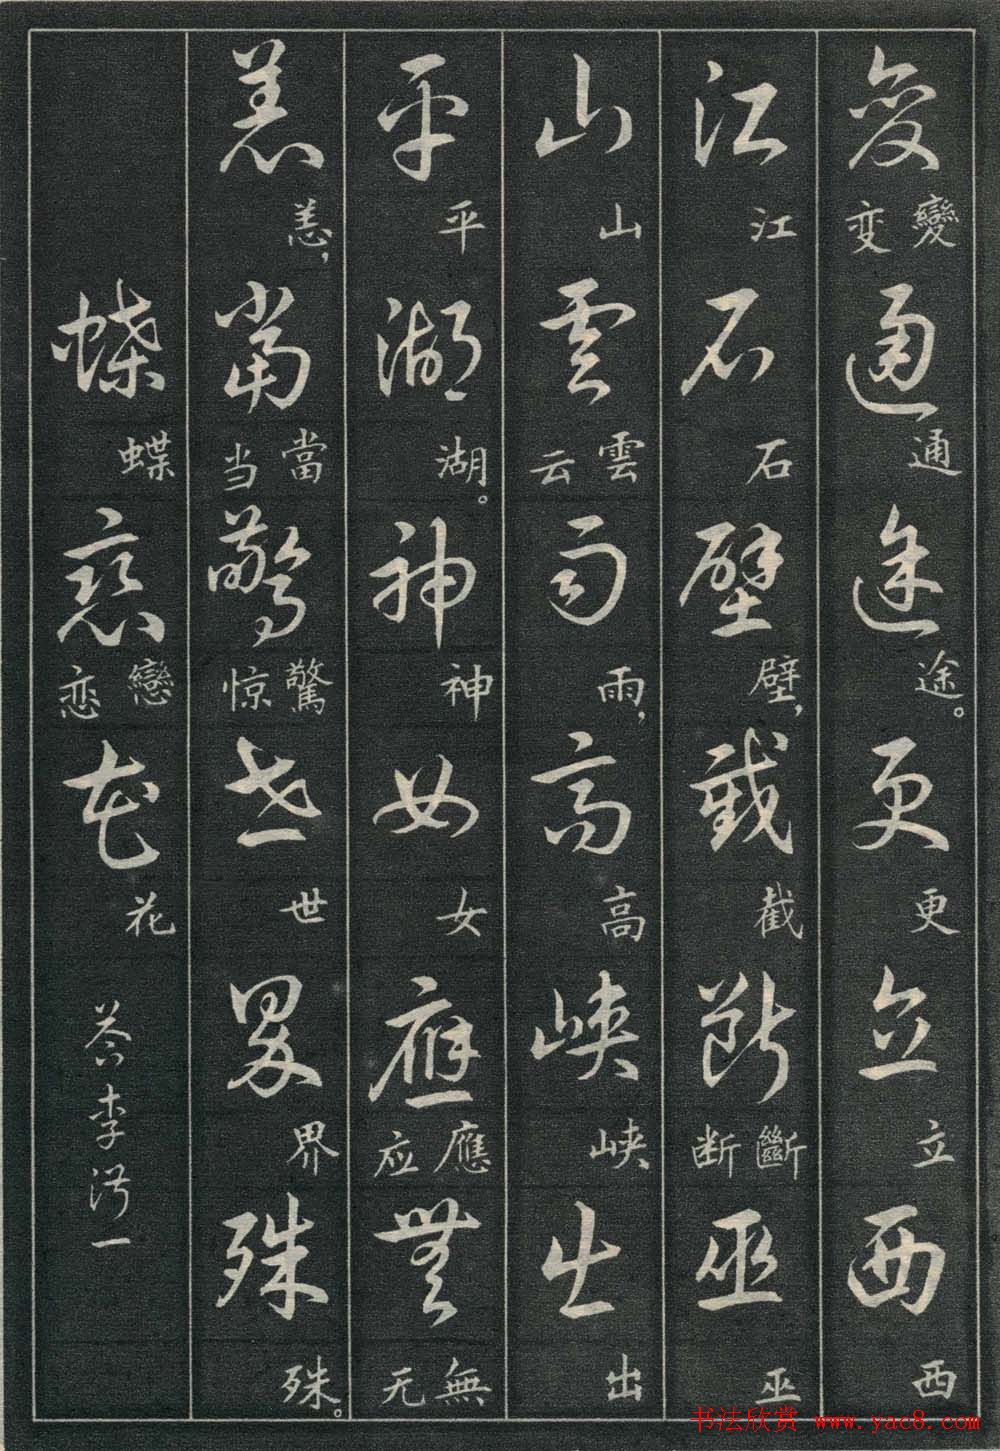 變通途更立西
變变通途。更立西
江石壁截斷巫
江石壁，截斷断巫
山雲雨高峡出
山雲云雨，高峡出
平湖神女應無
平湖。神女應应無无
恙當驚世界殊
恙，當当驚惊世界殊。
蝶戀花
蝶戀恋花
答李淑一
书法欣赏 www.yac8.com